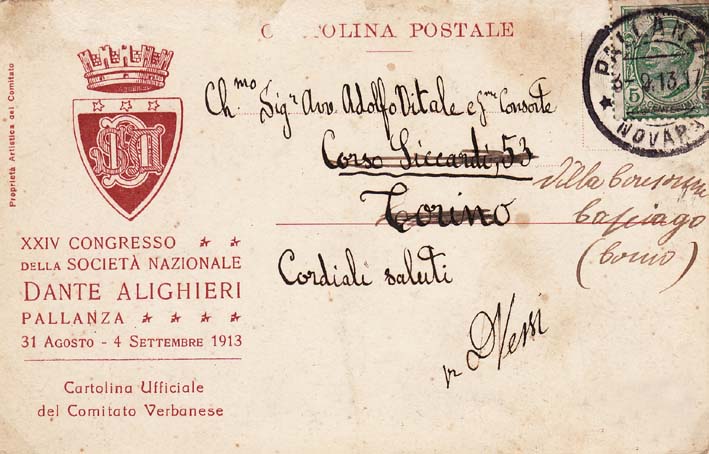 CARTOLINA POSTALE
PALLANZA
13.17
NOVARA
5
Proprietà Artistica del Comitato
Ch.mo Sigr. Avv. Adolfo Vitale e Gme Consorte
Corso Siccardi, 53
Torino
Villa
Casciago
(Como)
Cordiali saluti
XXIV CONGRESSO
DELLA SOCIETÀ NAZIONALE
DANTE ALIGHIERI
PALLANZA
31 AGOSTO - 4 SETTEMBRE 1913
Cartolina Ufficiale
del Comitato Verbanese